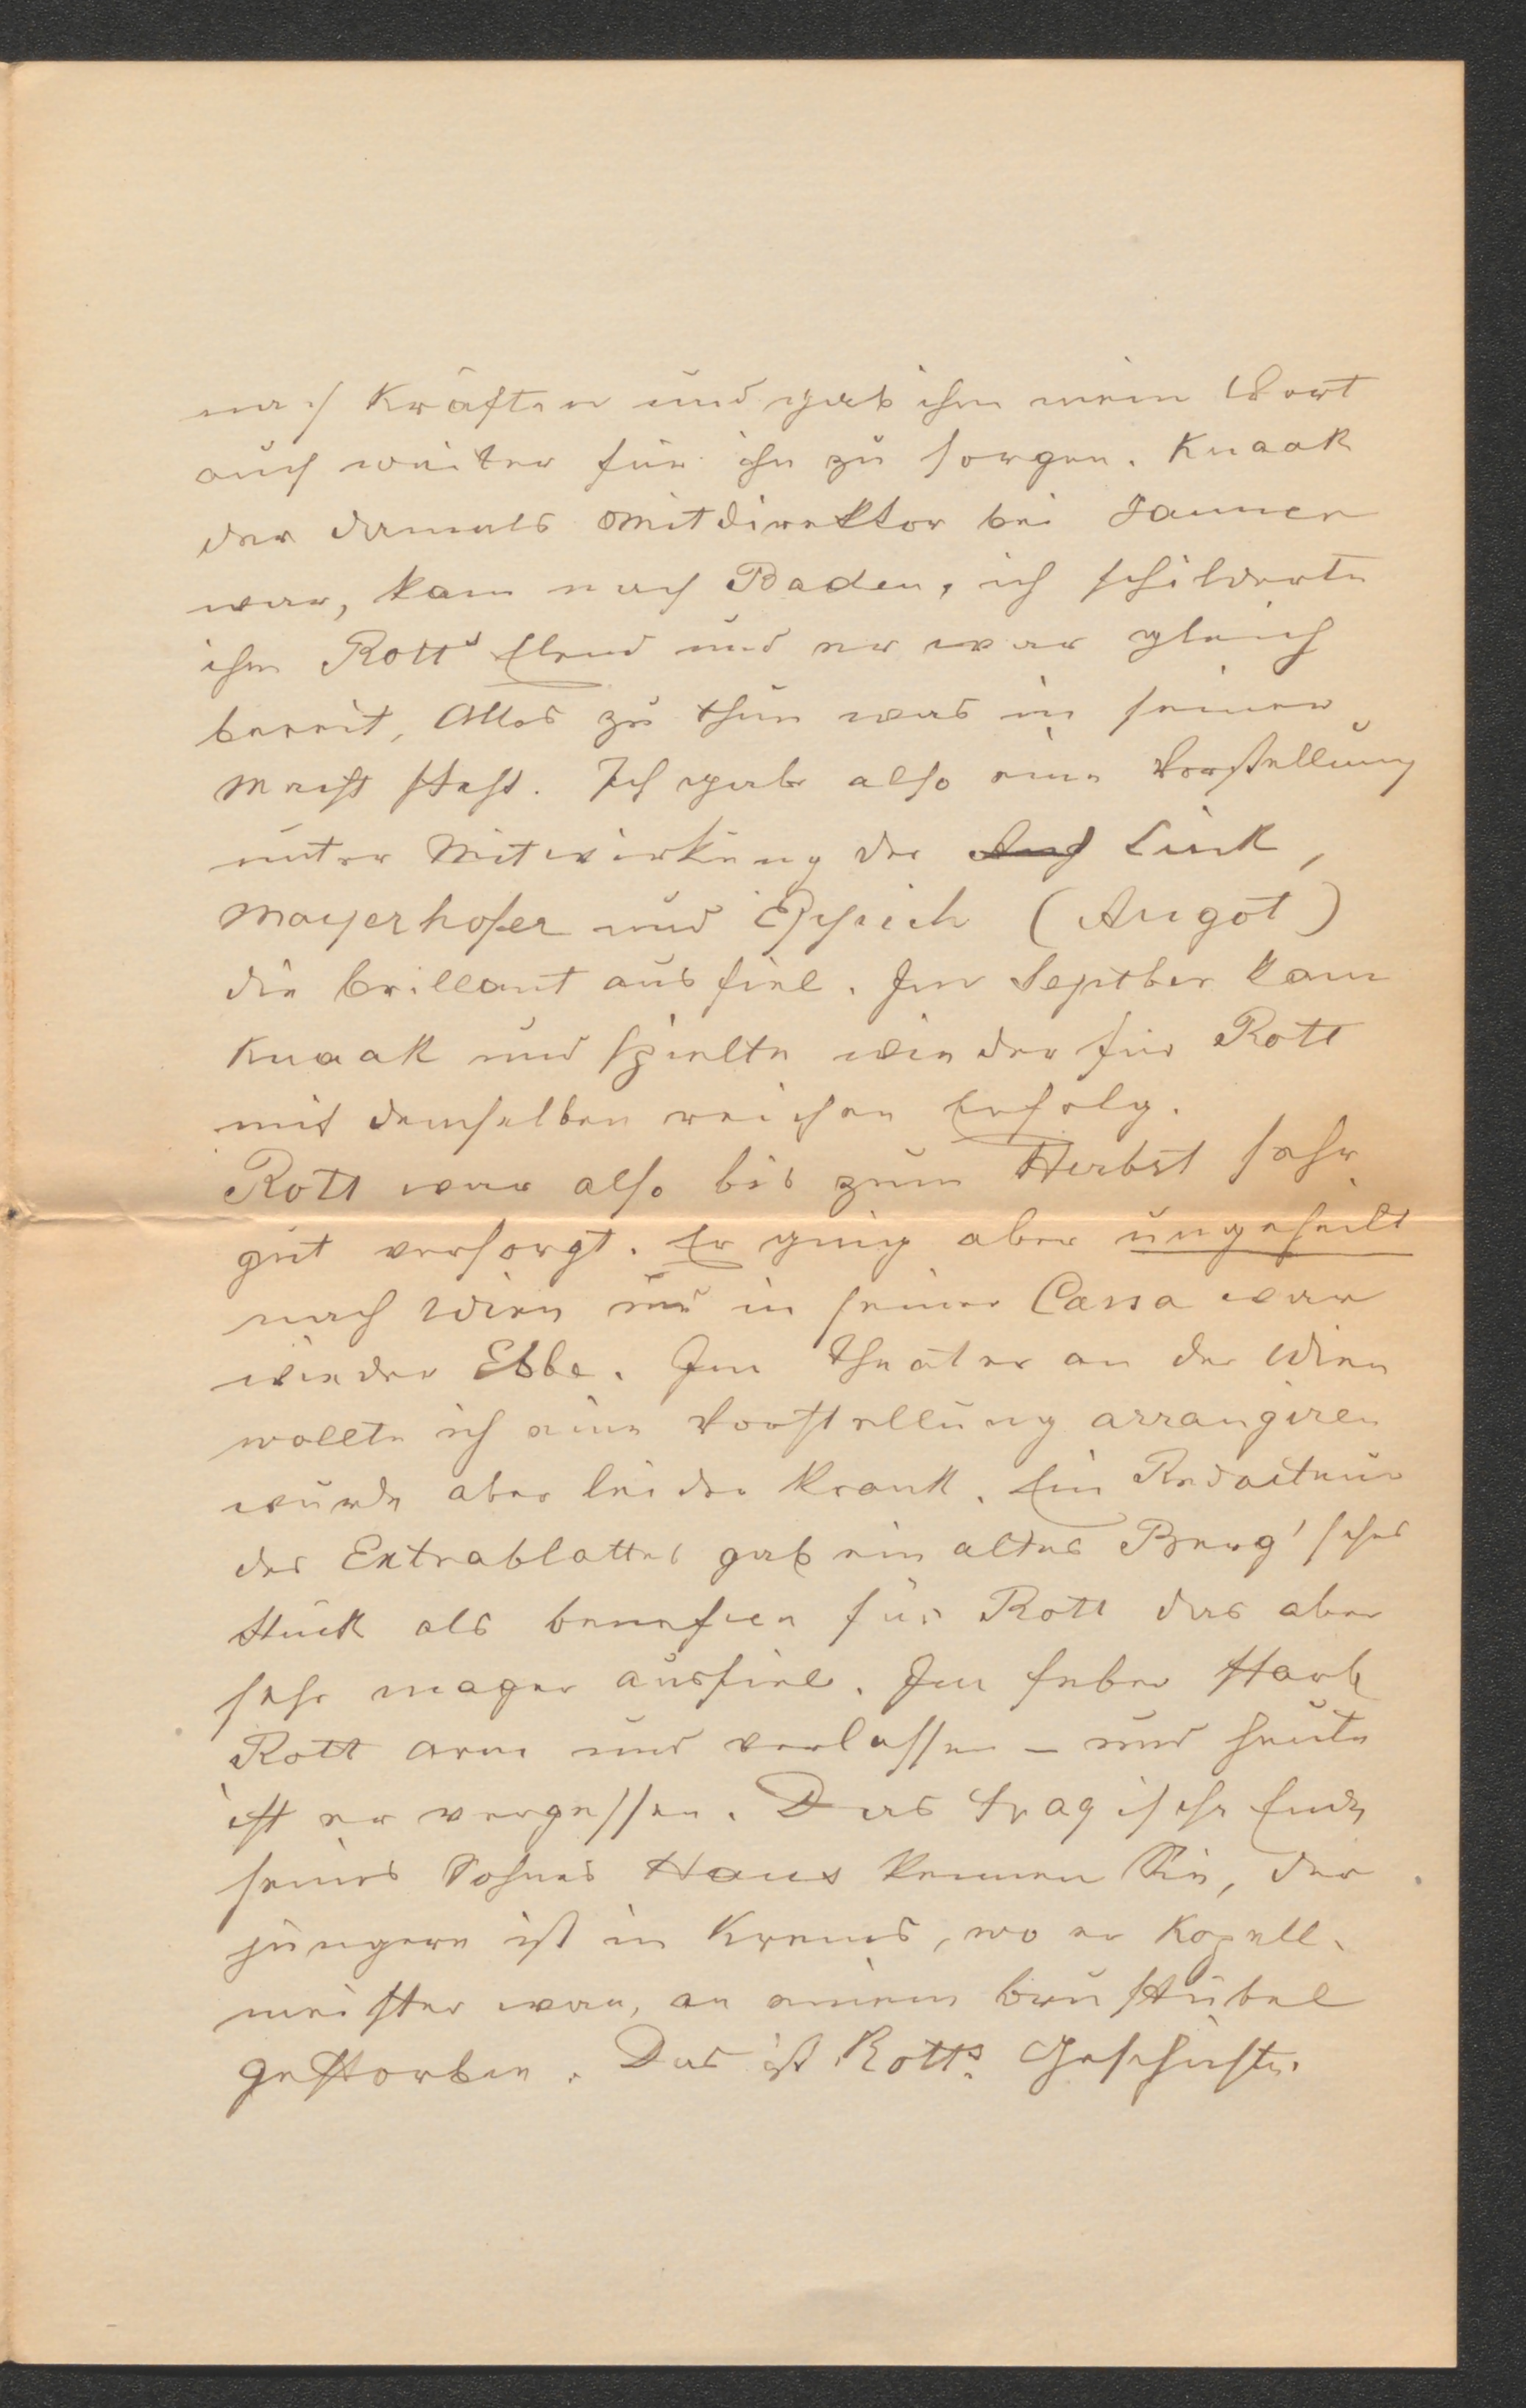 nach Kräften und gab ihm mein Wort
auch weiter für ihn zu sorgen. Knaak
der damals Mitdirektor bei Jauner
war, kam nach Baden, ich schilderte
ihm Rott's Elend und er war gleich
bereit, Alles zu thun was in seiner
Macht steht. Ich gab also eine Vorstellung
unter Mitwirkung der Link,
Mayerhofer und Eppich (Angot)
die brillant ausfiel. Im Septber kam
Knaak und spielte wieder für Rott
mit demselben reichen Erfolg.
Rott war also bis zum Herbst sehr
gut versorgt. Er ging aber ungeheilt
nach Wien und in seiner Cassa war
wieder Ebbe. Im Theater an der Wien
wollte ich eine Vorstellung arrangiren
wurde aber leider krank. Ein Redacteur
des Extrablattes gab ein altes Berg'sches
Stück als benefice für Rott das aber
sehr mager ausfiel. Im Feber starb
Rott arm und verlassen – und heute
ist er vergessen. Das tragische Ende
seines Sohnes Hans kennen Sie, der
jüngere ist in Krems, wo er Kapell-
meister war, an einem
gestorben. Das ist Rott's Geschichte.